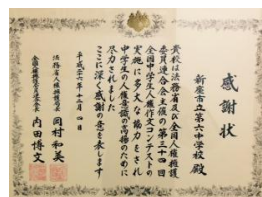 感謝状
新座市立第六中学校 殿
貴校は法務省及び全国人権擁護
委員連合会主催の第三十四回
全国中学生人権作文コンテストの
実施に多大な協力をされ
中学生の人権意識の高揚のために
尽力されました
ここに深く感謝の意を表します
平成二十六年十二月四日
法務省人権擁護局長 岡村和美
全国人権擁護委員連合会長 内田博文